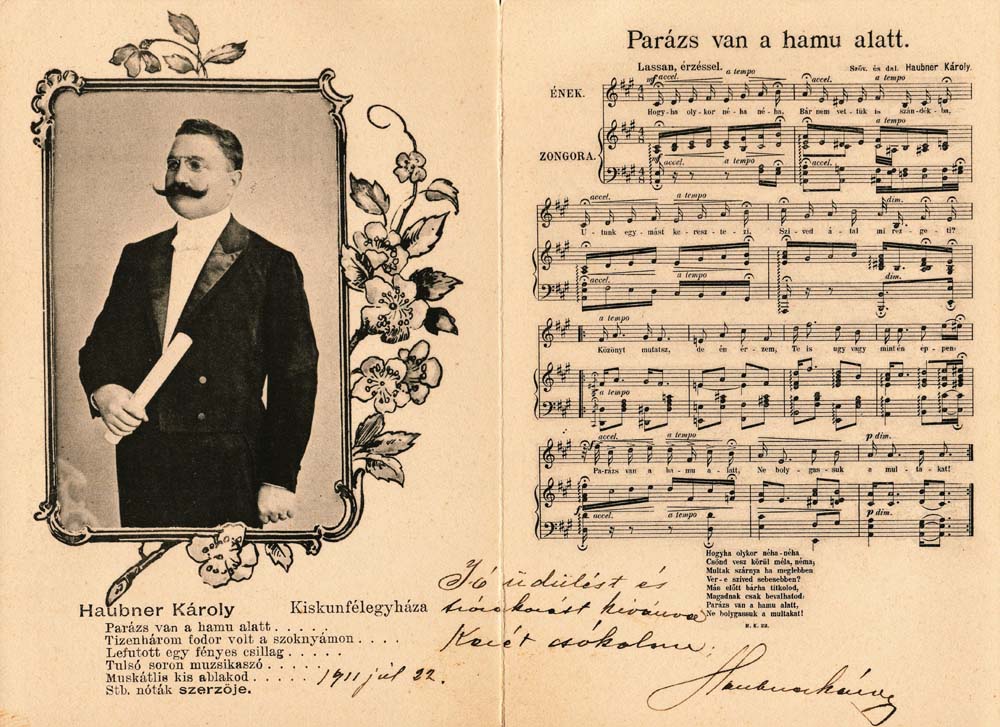 Haubner Károly Kiskunfélegyháza
Parázs van a hamu alatt . . . . .
Tizenhárom fodor volt a szoknyámon . . . .
Lefutott egy fényes csillag . . . . .
Tulsó soron muzsikaszó . . . . .
Muskátlis kis ablakod . . . . . 1911 júl 22.
Stb. nóták szerzője.
Parázs van a hamu alatt.
Lassan, érzéssel.
Szöv. és dal. Haubner Károly.
mf accel. a tempo accel. a tempo
ÉNEK.
Hogy-ha oly-kor né-ha né-ha, Bár nem vet-tük is szán-dék-ba,
a tempo
ZONGORA.
mf accel. a tempo accel.
accel. a tempo dim.
U-tunk egy-mást ke-resz-te-zi. Szi-ved á-tal mi rez-ge-ti?
accel. a tempo dim.
a tempo
Közönyt mutatsz, de én ér-zem, Te is ugy vagy mint én ép-pen:
a tempo
accel. a tempo p dim.
Pa-rázs van a ha-mu a-latt, Ne boly-gas-suk a mul-ta-kat!
accel. a tempo p dim.
Hogyha olykor néha-néha
Csönd vesz körül méla, néma;
Multak szárnya ha meglebben
Ver-e szived sebesebben?
Más előtt bárha titkolod,
Magadnak csak bevalhatod:
Parázs van a hamu alatt,
Ne bolygassuk a multakat!
H. K. 22.
Jó üdülést és
kivánva
Kezét csókolva:
Haubner Károly